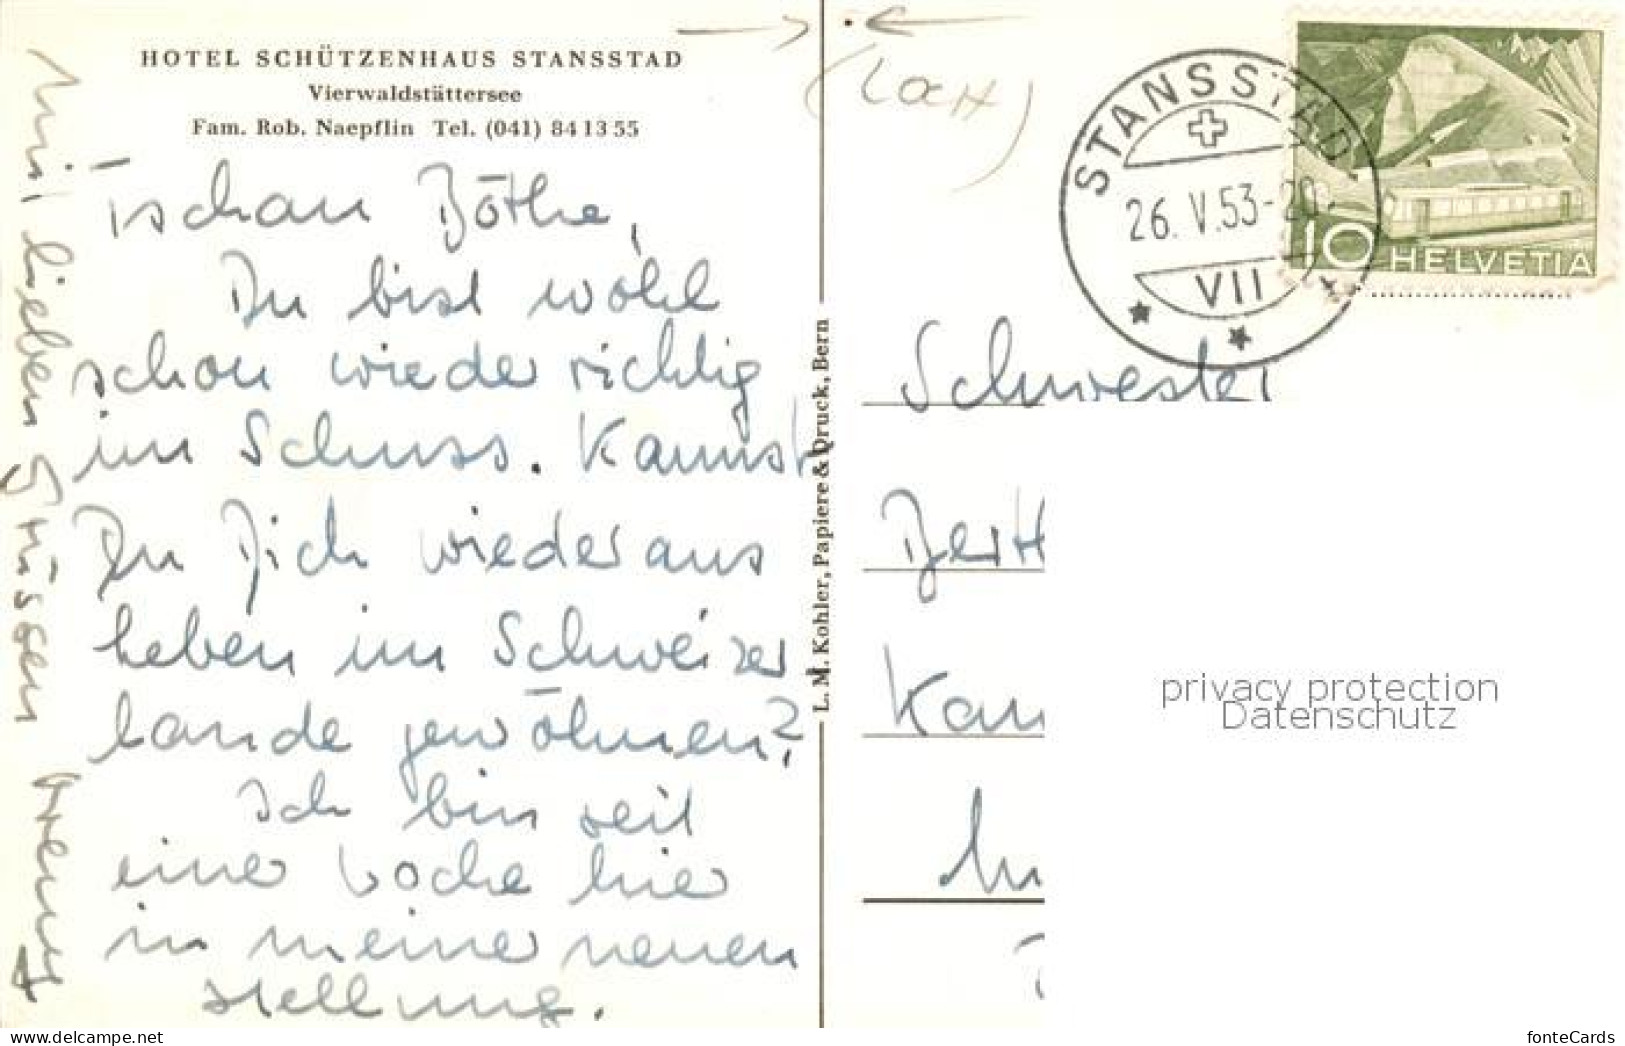 HOTEL SCHÜTZENHAUS STANSSTAD
Vierwaldstättersee
Fam. Rob. Naepflin Tel. (041) 84 13 55
Tschau Böthe,
Du bist wohl
schon wieder richtig
im Schuss. Kannst
Du Dich wieder ans
leben im Schweizer
lande gewöhnen?
Ich bin seit
eine Woche hier
in meine neuen
stellung.
Mit lieben Grüssen
L. M. Kohler, Papiere & Druck, Bern
STANSSTAD
26. V. 53-20.
VII
10
HELVETIA
Schwester
privacy protection
Datenschutz
www.delcampe.net
fonteCards